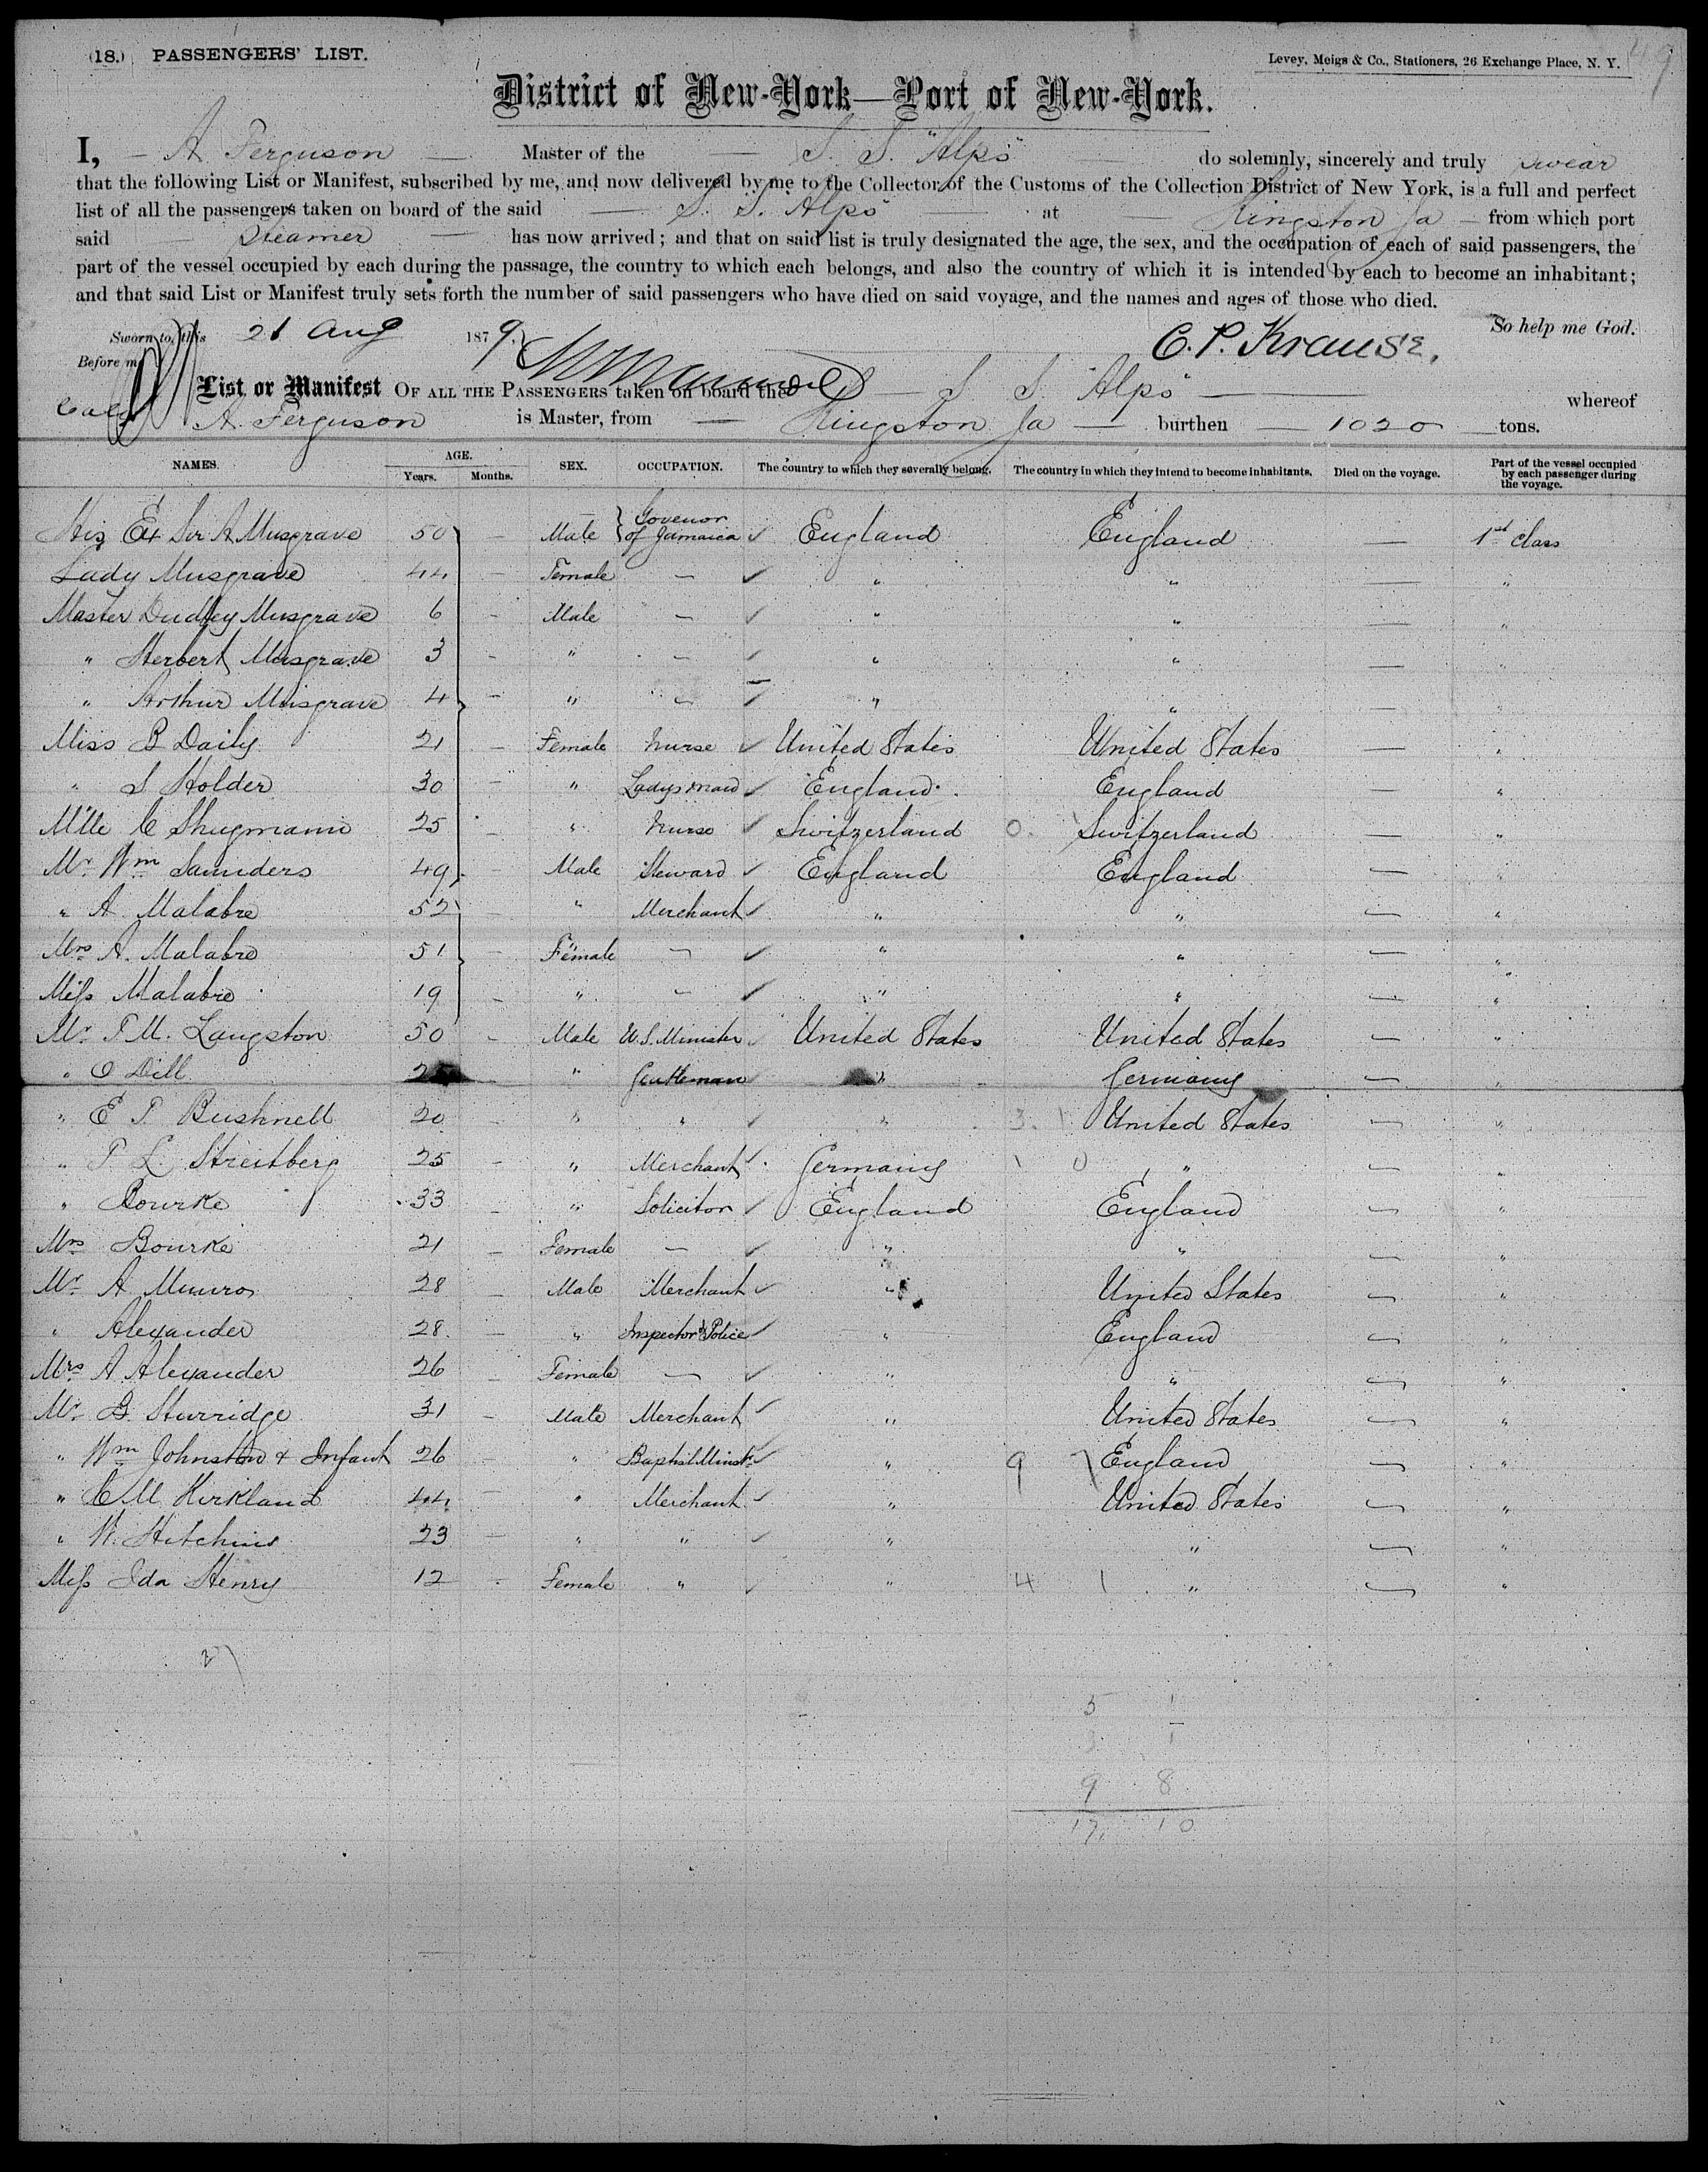 (18.) PASSENGERS' LIST.
Levey, Meigs & Co., Stationers, 26 Exchange Place, N. Y.
49
District of New-York—Port of New-York.
I, — A. Ferguson — Master of the — S. S. "Alps" — do solemnly, sincerely and truly swear
that the following List or Manifest, subscribed by me, and now delivered by me to the Collector of the Customs of the Collection District of New York, is a full and perfect
list of all the passengers taken on board of the said — S. S. "Alps" — at — Kingston Ja — from which port
said — Steamer — has now arrived; and that on said list is truly designated the age, the sex, and the occupation of each of said passengers, the
part of the vessel occupied by each during the passage, the country to which each belongs, and also the country of which it is intended by each to become an inhabitant;
and that said List or Manifest truly sets forth the number of said passengers who have died on said voyage, and the names and ages of those who died.
So help me God.
Sworn to, this 21 Aug 1879. C. P. Krause.
Before me
List or Manifest OF ALL THE PASSENGERS taken on board the — S. S. "Alps" — whereof
A. Ferguson is Master, from — Kingston Ja — burthen — 1020 — tons.
NAMES. AGE. Years. Months. SEX. OCCUPATION. The country to which they severally belong. The country in which they intend to become inhabitants. Died on the voyage. Part of the vessel occupied by each passenger during the voyage.
His Ex Sir A Musgrave 50 — Male Govenor of Jamaica ✓ England England — 1st Class
Lady Musgrave 44 — Female — ✓ " " — "
Master Dudley Musgrave 6 — Male — ✓ " " — "
" Herbert Musgrave 3 — " — ✓ " " — "
" Arthur Musgrave 4 — " — ✓ " " — "
Miss B Daily 21 — Female Nurse ✓ United States United States — "
" S Holder 30 — " Ladys maid ✓ England England — "
Mlle C Shugmann 25 — " Nurse ✓ Switzerland 0. Switzerland — "
Mr Wm Saunders 49 — Male Steward ✓ England England — "
" A. Malabre 52 — " Merchant ✓ " " — "
Mrs A. Malabre 51 — Female — ✓ " " — "
Miss Malabre 19 — " — ✓ " " — "
Mr J M. Langston 50 — Male U.S. Minister ✓ United States United States — "
" O Dill 25 — " Gentleman ✓ " Germany — "
" E J. Bushnell 20 — " " ✓ " 3. 1 United States — "
" P L. Streitberg 25 — " Merchant ✓ Germany 1 0 " — "
" Bourke 33 — " Solicitor ✓ England England — "
Mrs Bourke 21 — Female — ✓ " " — "
Mr A Munro 28 — Male Merchant ✓ " United States — "
" Alexander 28. — " Inspector of Police ✓ " England — "
Mrs A Alexander 26 — Female — ✓ " " — "
Mr G. Sturridge 31 — Male Merchant ✓ " United States — "
" Wm Johnston & Infant 26 — " Baptist Minstr ✓ " 9 7 England — "
" C M Kirkland 44 — " Merchant ✓ " United States — "
" W. Hitchins 23 — " " ✓ " " — "
Miss Ida Henry 12 — Female " ✓ " 4 1 " — "
5 1
3 1
9 8
17 10